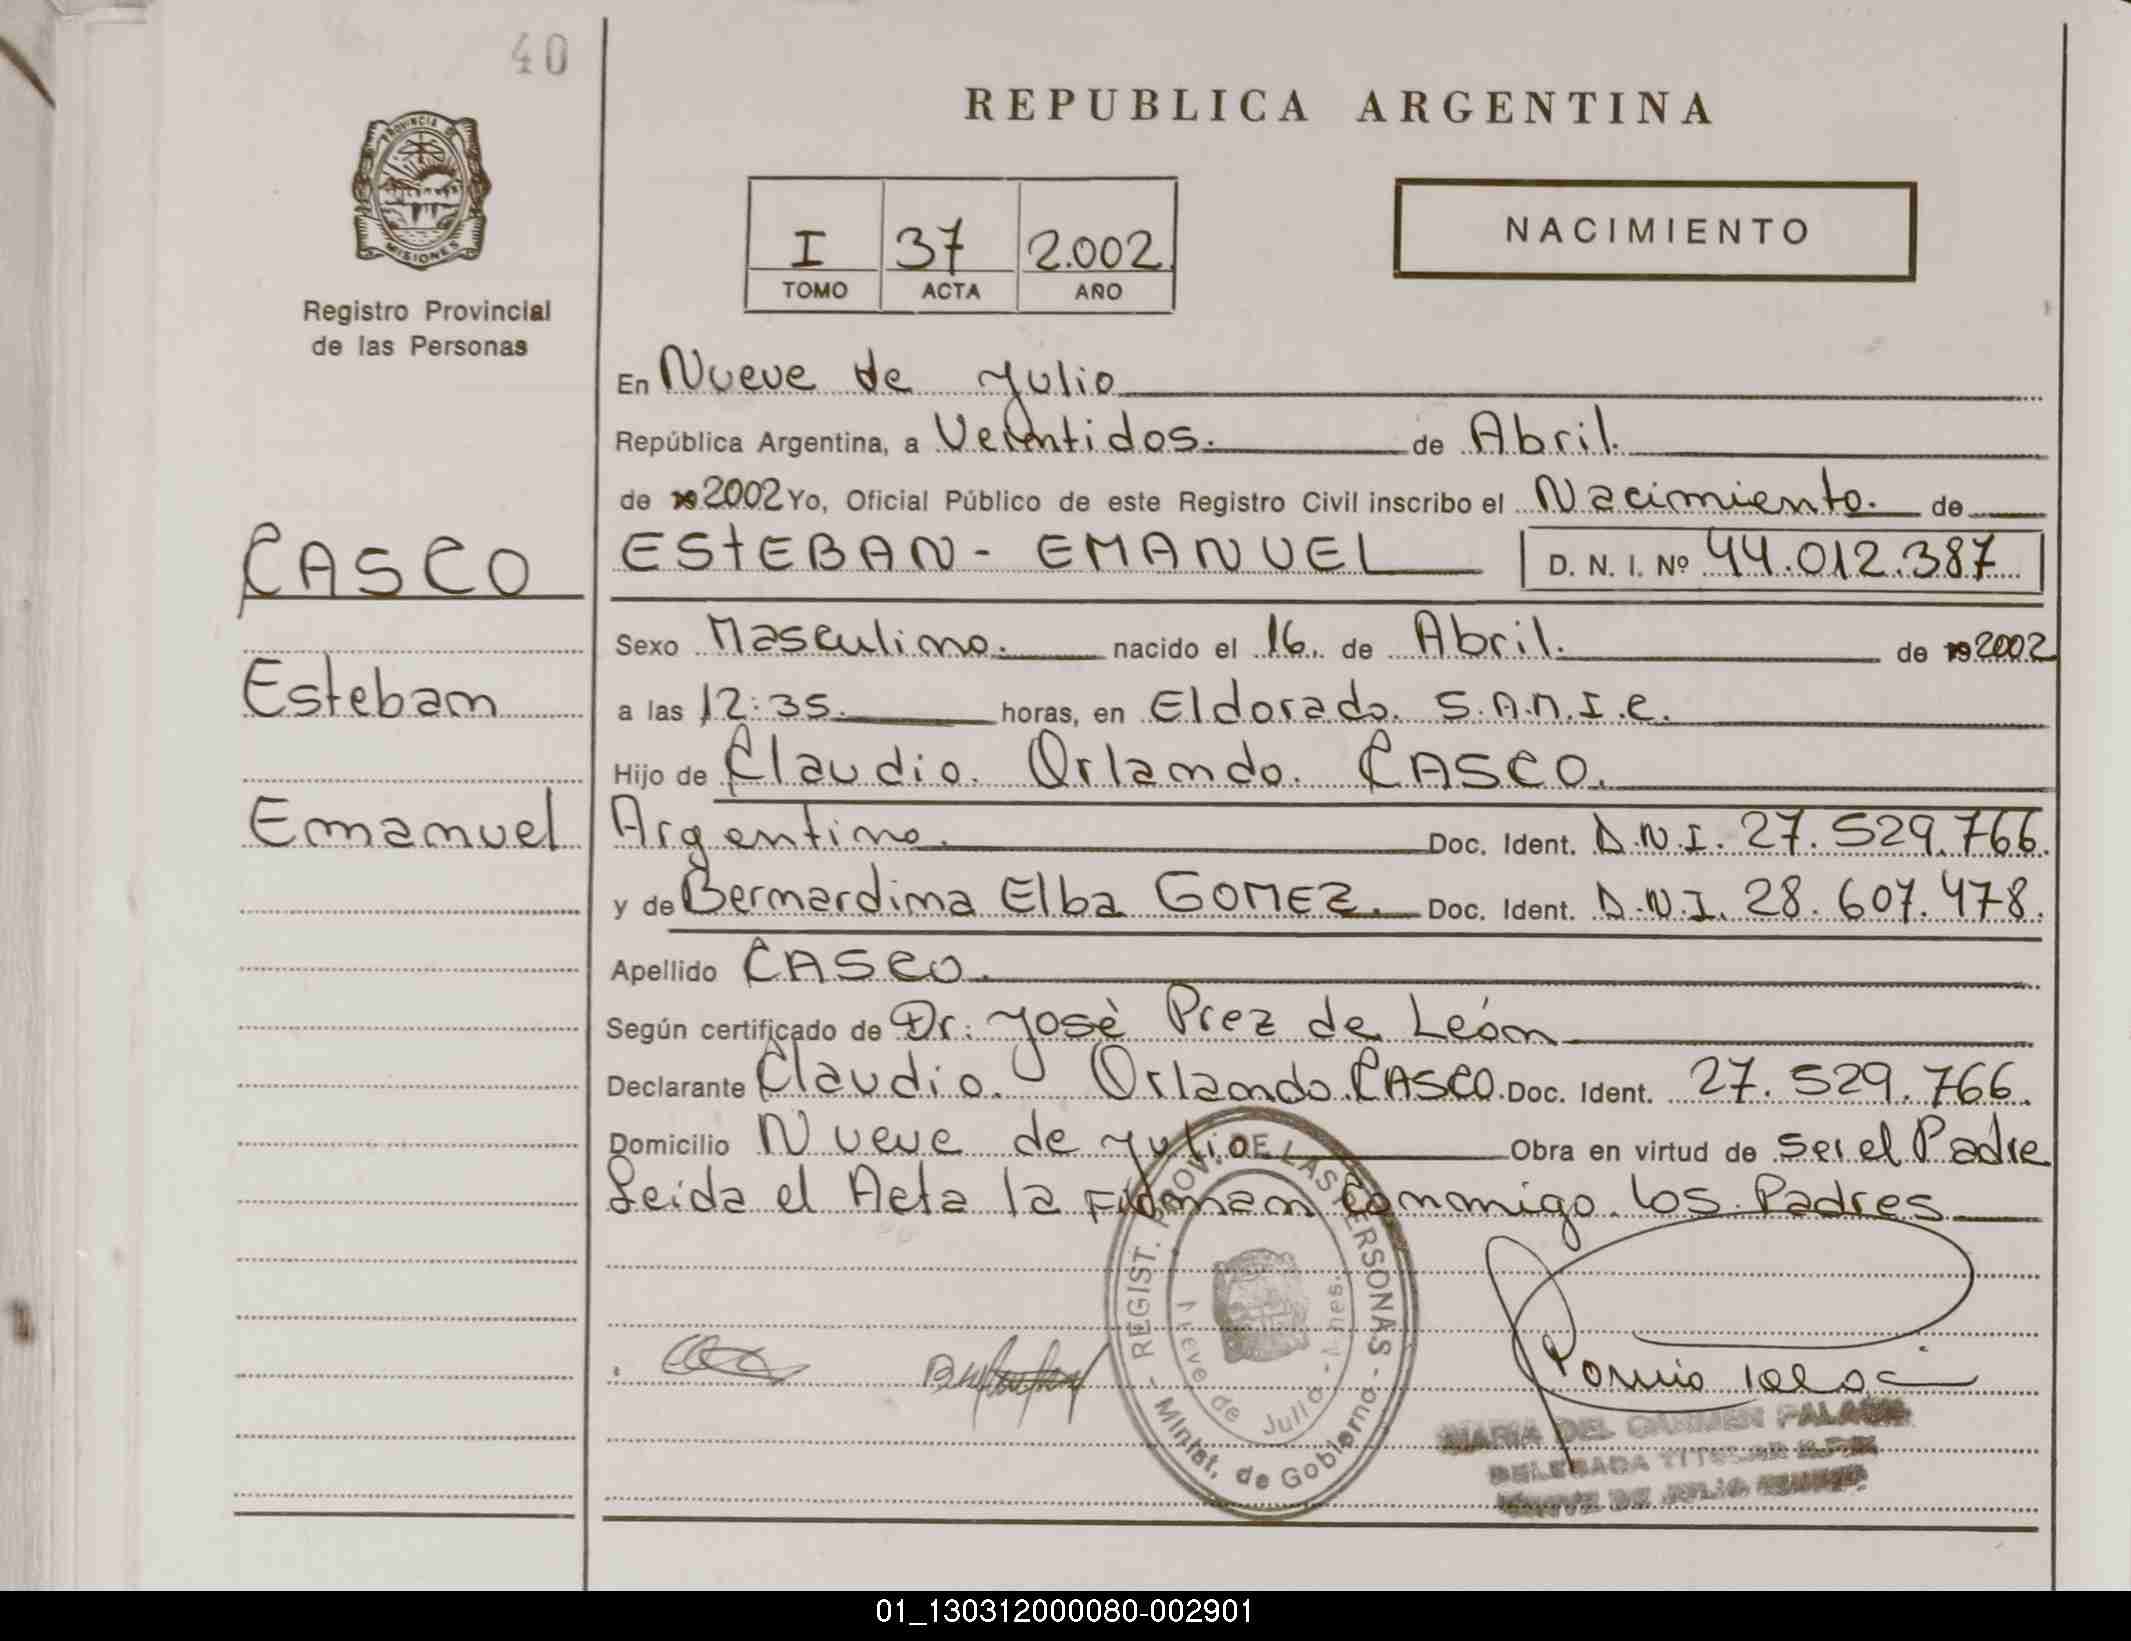 40
REPUBLICA ARGENTINA
PROVINCIA DE
MISIONES
Registro Provincial
de las Personas
I 37 2.002
TOMO ACTA AÑO
NACIMIENTO
En Nueve de Julio
República Argentina, a Veintidos. de Abril.
de 19 2002 Yo, Oficial Público de este Registro Civil inscribo el Nacimiento. de
CASCO
ESTEBAN - EMANUEL D. N. I. Nº 44.012.387
Sexo Masculino. nacido el 16. de Abril. de 19 2002
Esteban
a las 12:35. horas, en Eldorado. S.A.M.I.C.
Hijo de Claudio. Orlando. CASCO.
Emanuel
Argentino. Doc. Ident. D.N.I. 27.529.766.
y de Bernardina Elba GOMEZ. Doc. Ident. D.N.I. 28.607.478.
Apellido CASCO.
Según certificado de Dr. José Prez de León
Declarante Claudio. Orlando. CASCO. Doc. Ident. 27.529.766.
Domicilio Nueve de Julio Obra en virtud de ser el Padre
Leida el Acta la Firman Conmigo. los Padres
REGIST. PROV. DE LAS PERSONAS
Nueve de Julio - Mnes.
- Minist. de Gobierno -
MARIA DEL CARMEN
DELEGADA TITULAR
NUEVE DE JULIO
01_130312000080-002901